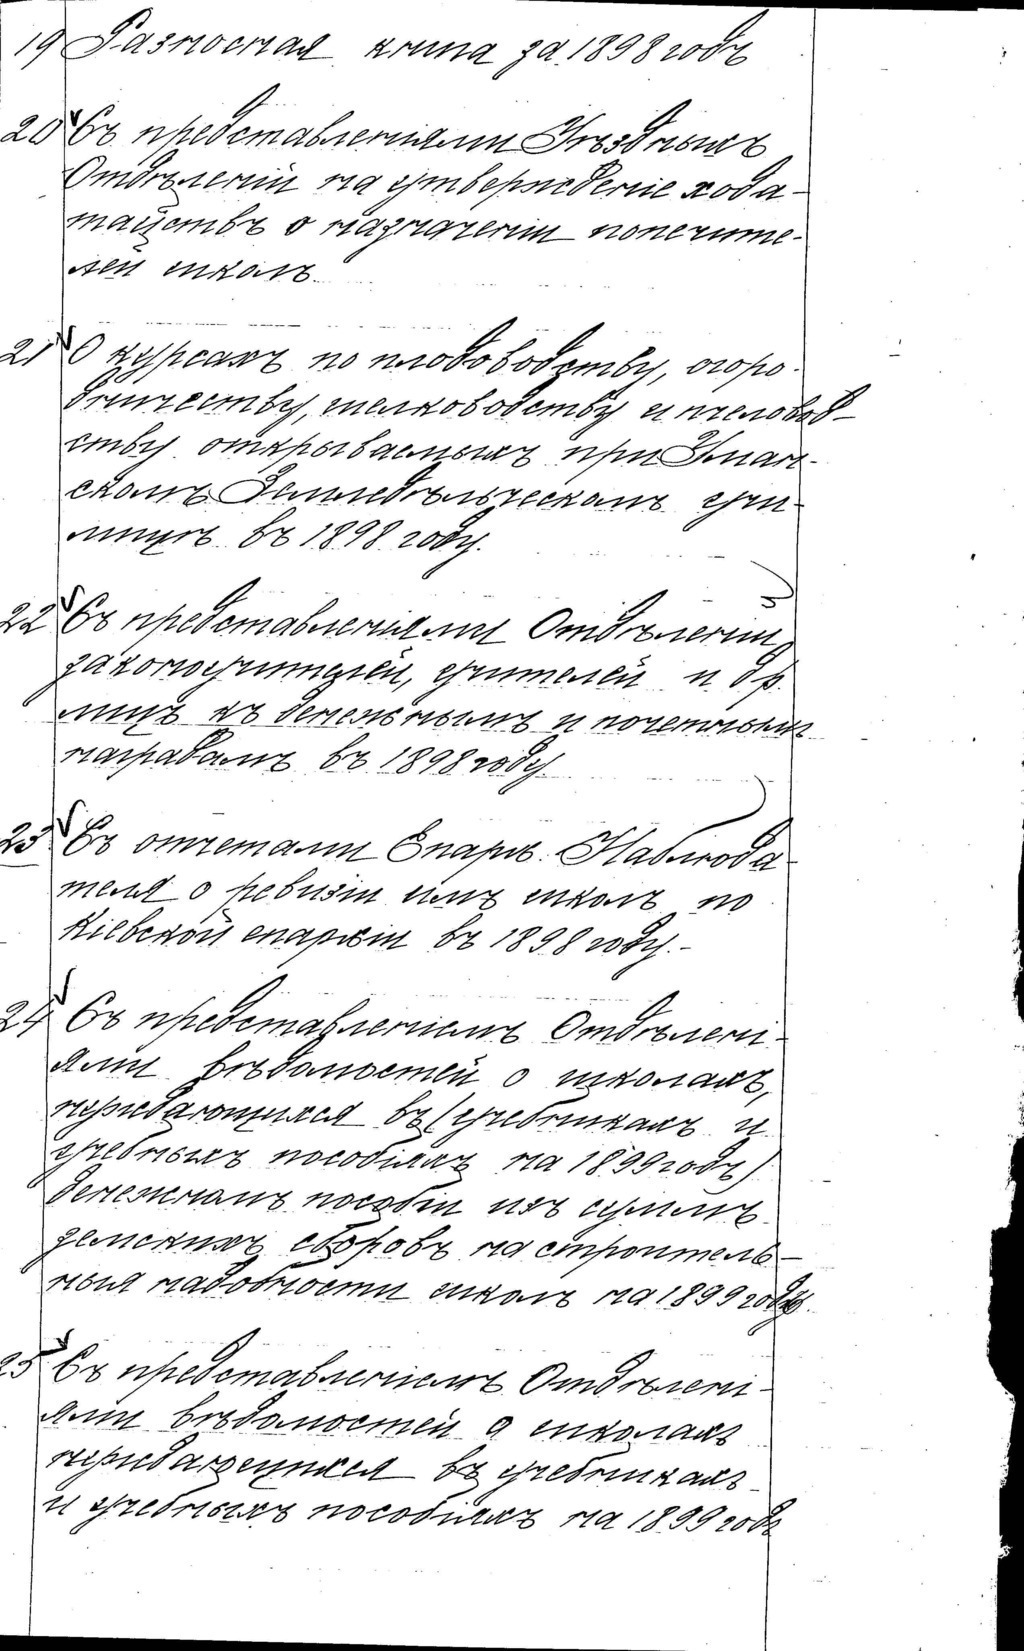 19 Разносная книга за 1898 годъ
20 Съ представленіями Уѣздныхъ
Отдѣленій на утвержденіе хода-
тайствъ о назначеніи попечите-
лей школъ.
21 О курсахъ по плодоводству, огоро-
дничеству, шелководству и пчеловод-
ству открываемыхъ при Уман-
скомъ Земледѣльческомъ учи-
лищѣ въ 1898 году.
22 Съ представленіями Отдѣленій
законоучителей, учителей и др.
лицъ къ денежнымъ и почетнымъ
наградамъ въ 1898 году
23 Съ отчетами Епарх. Наблюда-
теля о ревизіи имъ школъ по
Кіевской епархіи въ 1898 году.-
24 Съ представленіемъ Отдѣлені-
ями вѣдомостей о школахъ,
нуждающихся въ (учебникахъ и
учебныхъ пособіяхъ на 1899 годъ)
денежномъ пособіи изъ суммъ
земскихъ сборовъ на строитель-
ныя надобности школъ на 1899 годъ.
25 Съ представленіемъ Отдѣлені-
ями вѣдомостей о школахъ
нуждающихся въ учебникахъ
и учебныхъ пособіяхъ на 1899 годъ